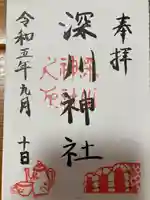 奉拝
深川神社
令和五年九月
十日